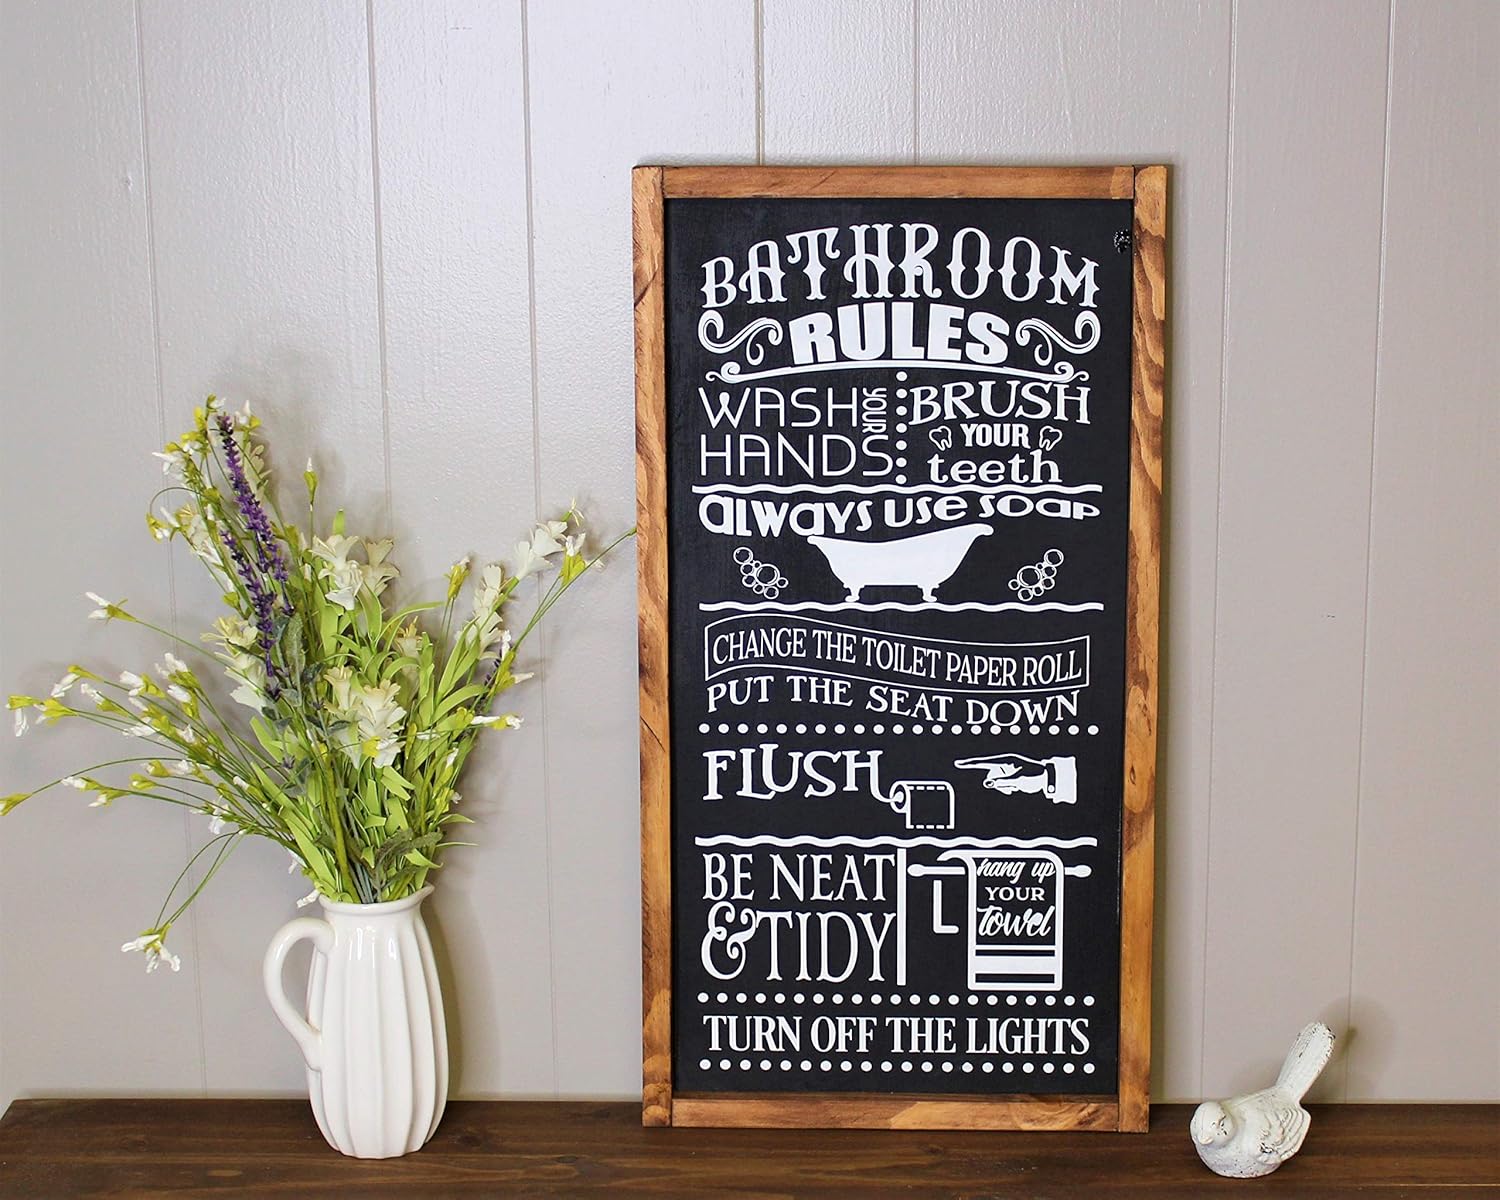 BATHROOM
RULES
WASH YOUR
HANDS
BRUSH
YOUR
teeth
always use soap
CHANGE THE TOILET PAPER ROLL
PUT THE SEAT DOWN
FLUSH
BE NEAT
& TIDY
hang up
YOUR
towel
TURN OFF THE LIGHTS